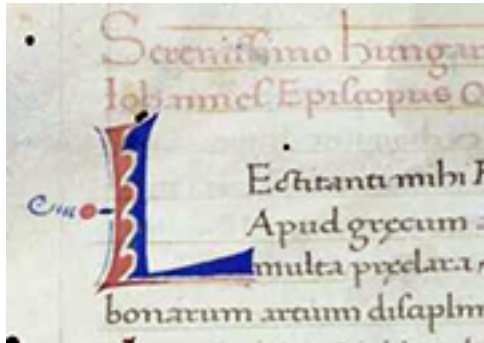 Sereniſſimo hungar
Iohanneſ Epiſcopus
LEctitanti mihi
Apud gręcum
multa pręclara
bonarum artium diſciplin